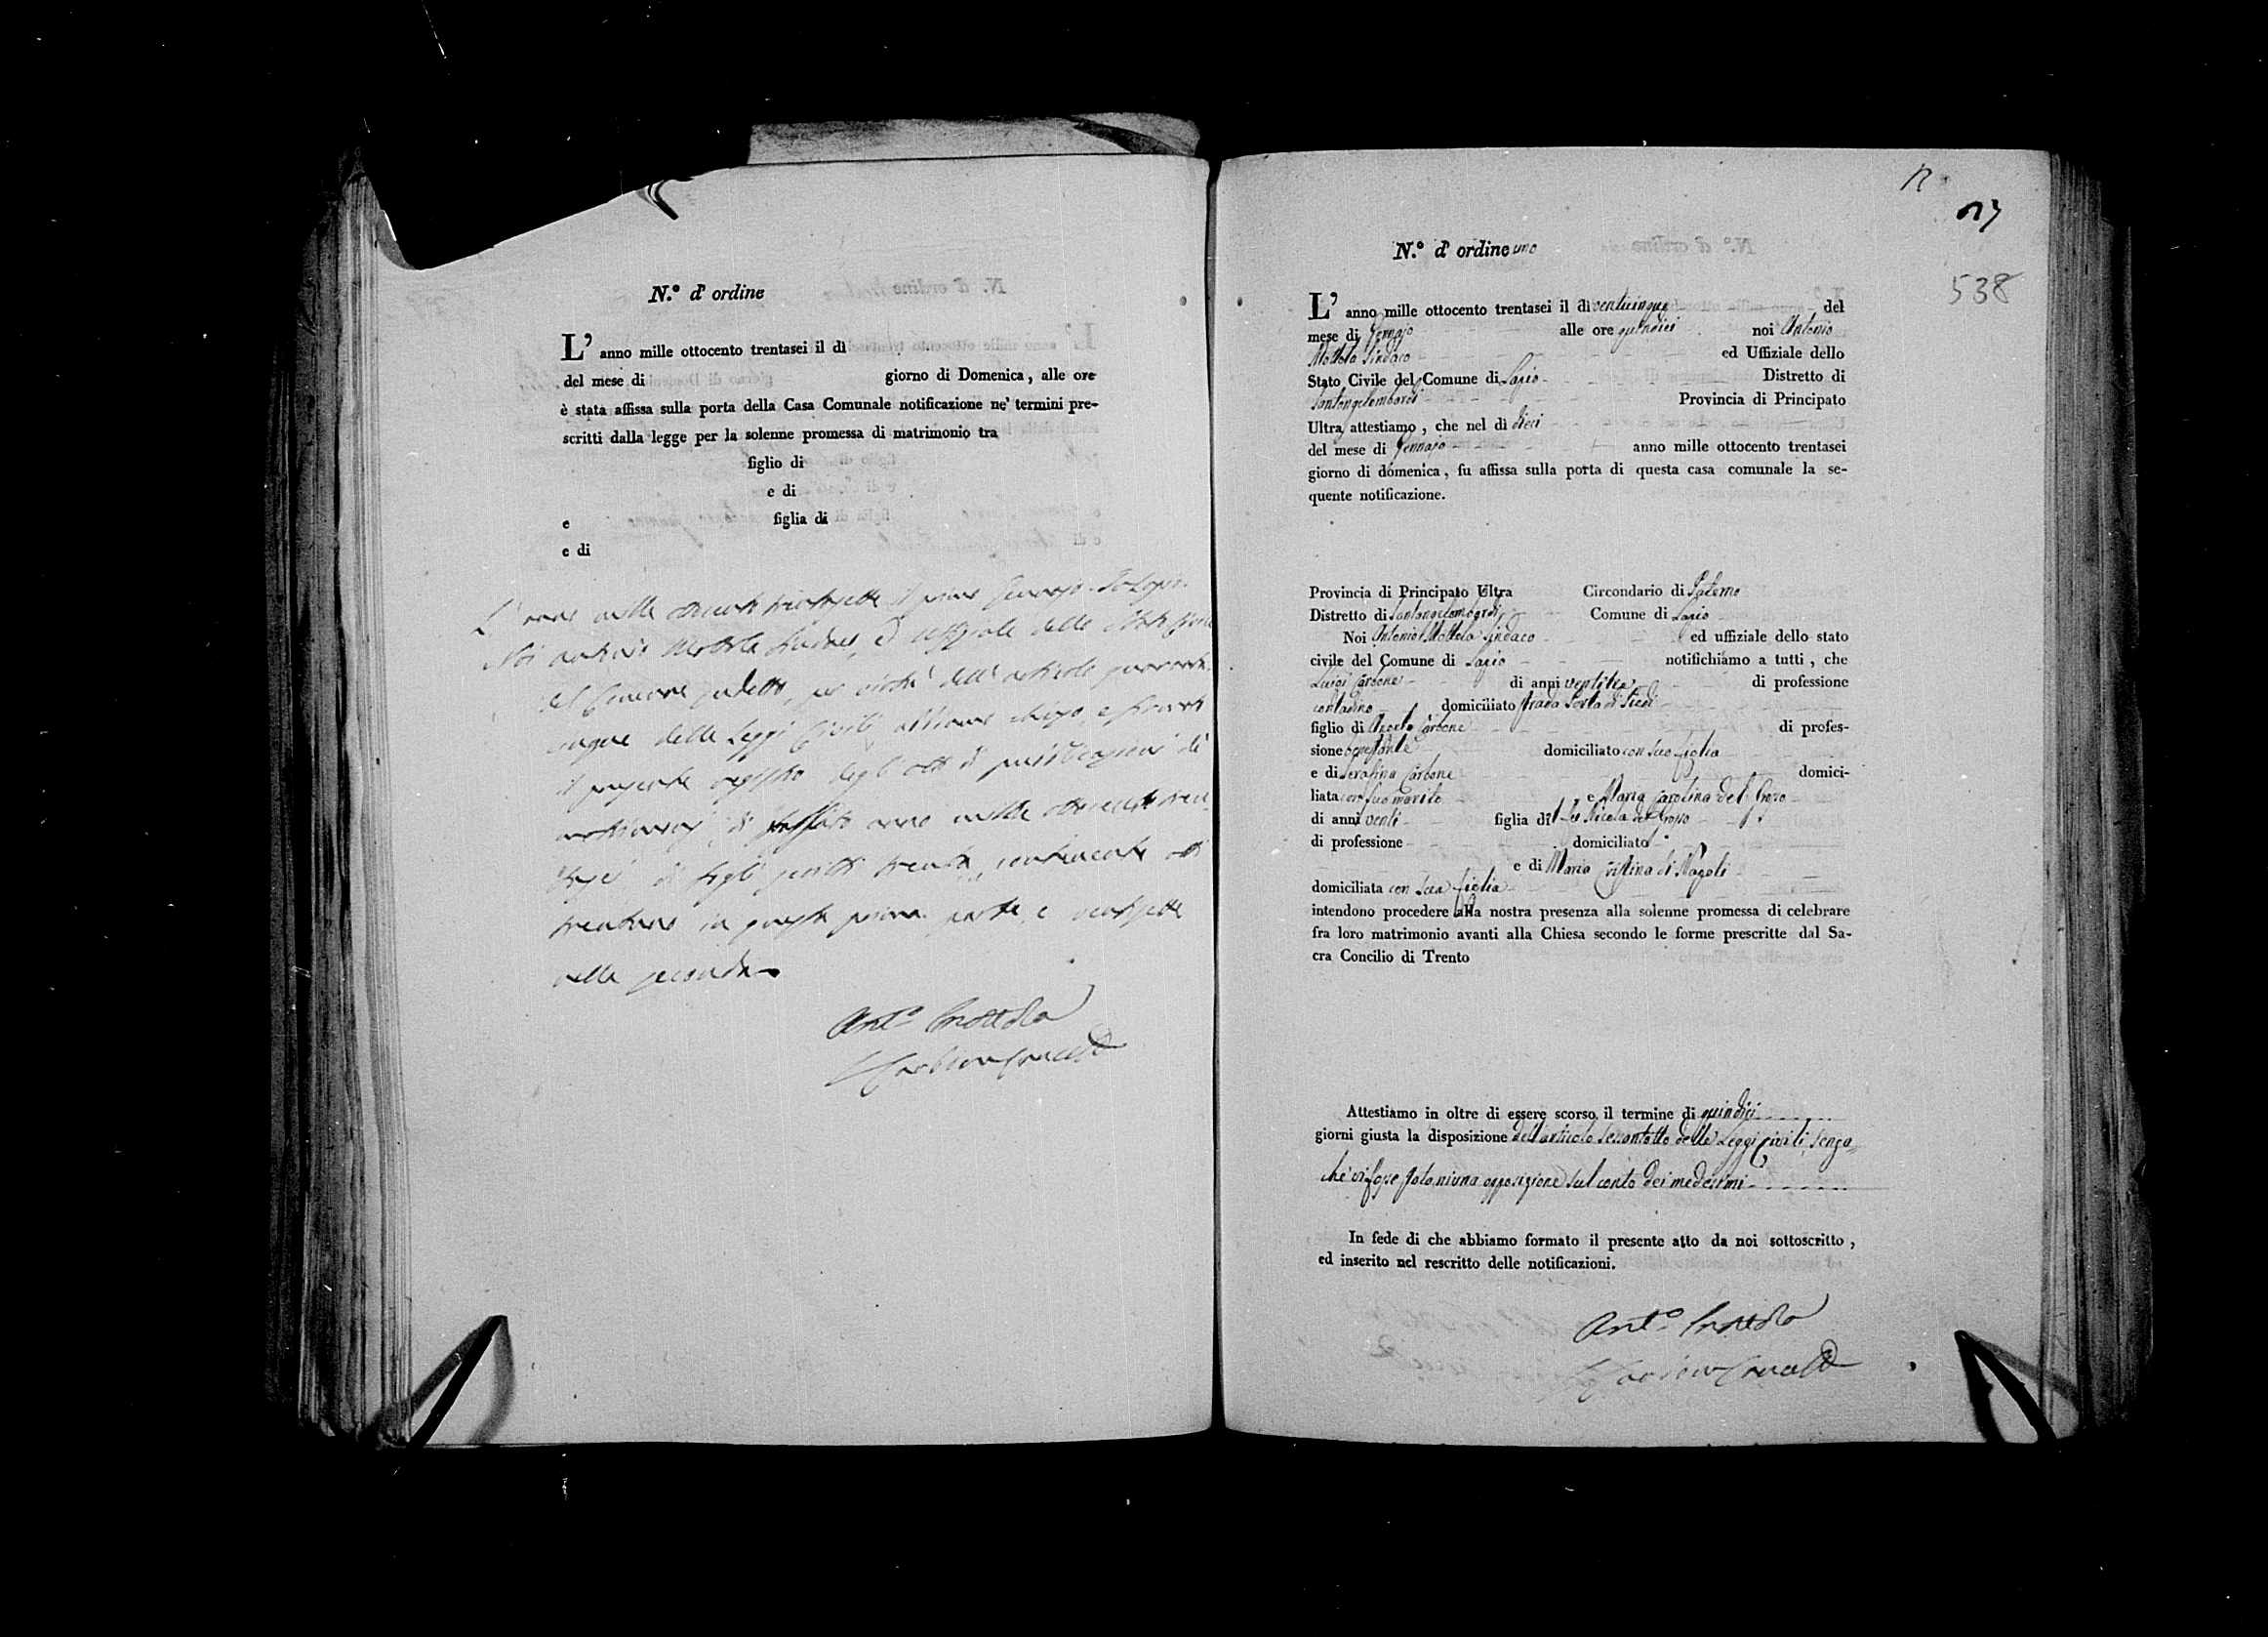 N.° d' ordine
L' anno mille ottocento trentasei il dì
del mese di giorno di Domenica, alle ore
è stata affissa sulla porta della Casa Comunale notificazione ne' termini pre-
scritti dalla legge per la solenne promessa di matrimonio tra
figlio di
e di
e figlia di
e di
L'anno mille ottocento trentasette il primo Gennajo
Noi Antonio Mottola Sindaco, ed uffiziale dello Stato Civile
del Comune sudetto, per virtù dell'articolo quaranta
cinque delle Leggi Civili, abbiamo chiuso, e firmato
il presente registro degli atti di pubblicazioni di
matrimonj, di anno mille ottocento tren-
tasei di fogli scritti trenta, contenente atti
trentuno in questa prima parte, e ventisette
nella seconda
Ant.° Mottola
12
538
N.° d' ordine uno
L' anno mille ottocento trentasei il dì venticinque del
mese di Gennajo alle ore quindici noi Antonio
Mottola Sindaco ed Uffiziale dello
Stato Civile del Comune di Lapio Distretto di
Santangelombardi Provincia di Principato
Ultra attestiamo, che nel dì dieci
del mese di Gennajo anno mille ottocento trentasei
giorno di domenica, fu affissa sulla porta di questa casa comunale la se-
quente notificazione.
Provincia di Principato Ultra Circondario di Paterno
Distretto di Santangelombardi Comune di Lapio
Noi Antonio Mottola Sindaco ed uffiziale dello stato
civile del Comune di Lapio notifichiamo a tutti, che
Luigi Carbone di anni ventitre di professione
contadino domiciliato strada Porta di Piedi
figlio di Carbone di profes-
sione benestante domiciliato con suo figlio
e di Serafina Carbone domici-
liata con suo marito e Maria Carolina del Grosso
di anni venti figlia di Nicola del Grosso
di professione domiciliato
e di Maria Cristina di Napoli
domiciliata con sua figlia
intendono procedere alla nostra presenza alla solenne promessa di celebrare
fra loro matrimonio avanti alla Chiesa secondo le forme prescritte dal Sa-
cra Concilio di Trento
Attestiamo in oltre di essere scorso il termine di quindici
giorni giusta la disposizione dell'articolo sessantotto delle Leggi civili, senza
che vi fosse stata niuna opposizione sul conto dei medesimi
In fede di che abbiamo formato il presente atto da noi sottoscritto,
ed inserito nel rescritto delle notificazioni.
Ant.° Mottola